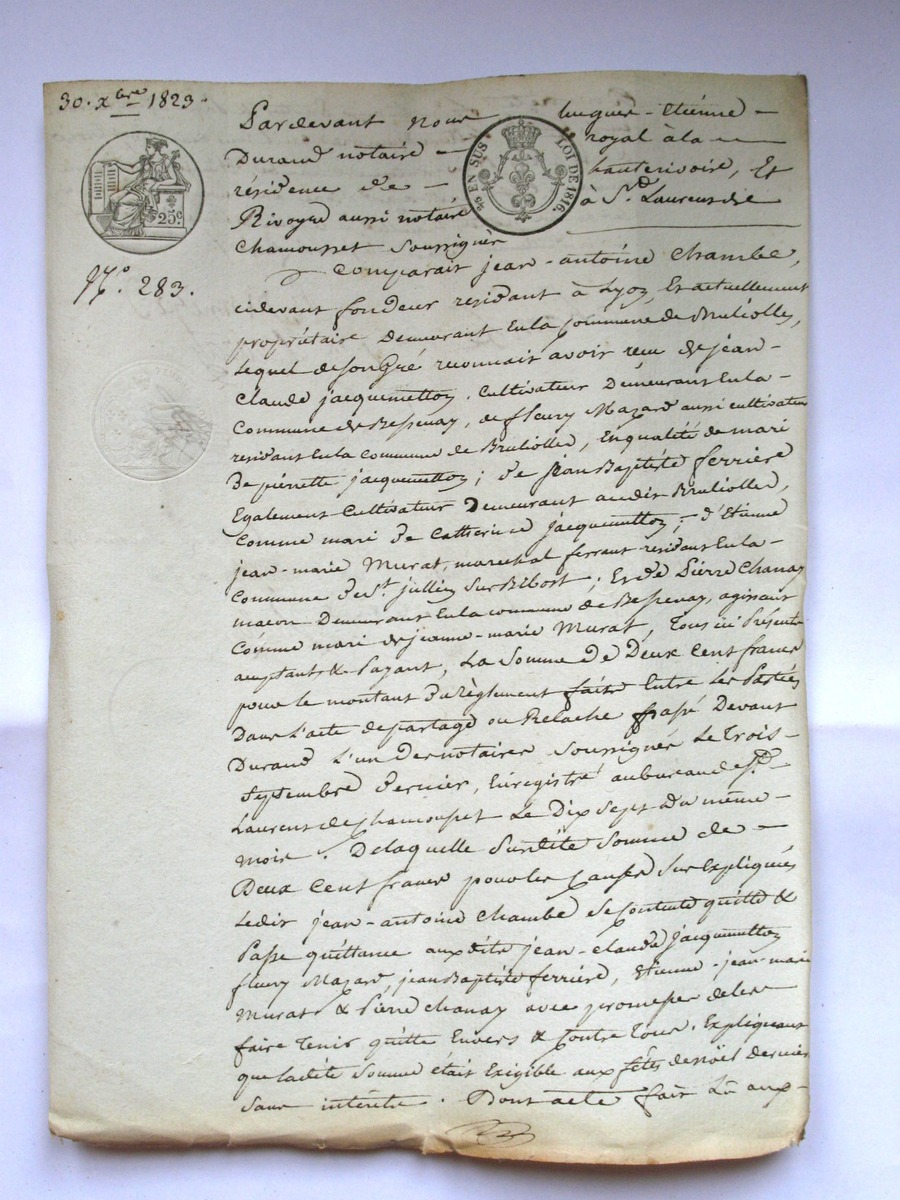 30. xbre 1823.
Pardevant nous hugues-Etienne-
Durand notaire - royal à la
résidence de - hauterivoire, Et
Rivoyre aussi notaire à St. Laurent de
Chamousset Soussignés
25 EN SUS LOI DE 1816.
25c
No. 283.
Comparait jean-antoine Chambe,
cidevant fondeur residant à Lyon, Et actuellement
propriétaire Demeurant En la Commune de Brulioles,
Lequel de son Gré reconnait avoir reçu de jean-
Claude jacquemetton, Cultivateur Demeurant En la-
Commune de Bessenay, de fleury Mazard aussi cultivateur
residant En la commune de Brulioles, En qualité de mari
De pierrette jacquemetton; de jean Baptiste ferrière
Egalement Cultivateur Demeurant audit Brulioles,
Comme mari de Catherine jacquemetton; d'Etienne
jean-marie Murat, marechal ferrant residant En la-
Commune de St. jullien Sur Bibost; Et de Pierre Chanay
macon Demeurant En la commune de Bessenay, agissant
Comme mari de jeanne-marie Murat, Tous ici Présents
acceptants & Payant, La Somme de Deux Cent francs
pour le montant du Règlement fait Entre Les Parties
Dans L'acte de partage ou Relache passé Devant
Durand L'un des notaires Soussignés Le Trois-
Septembre Dernier, Enregistré au bureau de St.
Laurent de Chamousset Le Dix Sept du même-
mois. De laquelle Susdite Somme de-
Deux Cent francs pour les Causes Sus Expliquées
Ledit jean-antoine Chambe Se Contente quitte &
Passe quittance auxdits jean-claude jacquemetton
fleury Mazard, jean Baptiste ferrière, Etienne-jean-marie
Murat & Pierre Chanay avec promesse de les
faire Tenir quitte Envers & Contre Tous. Expliquant
que ladite Somme était Exigible aux fêtes de noël Dernier
Sans intérêts. Dont acte fait Lu aux-